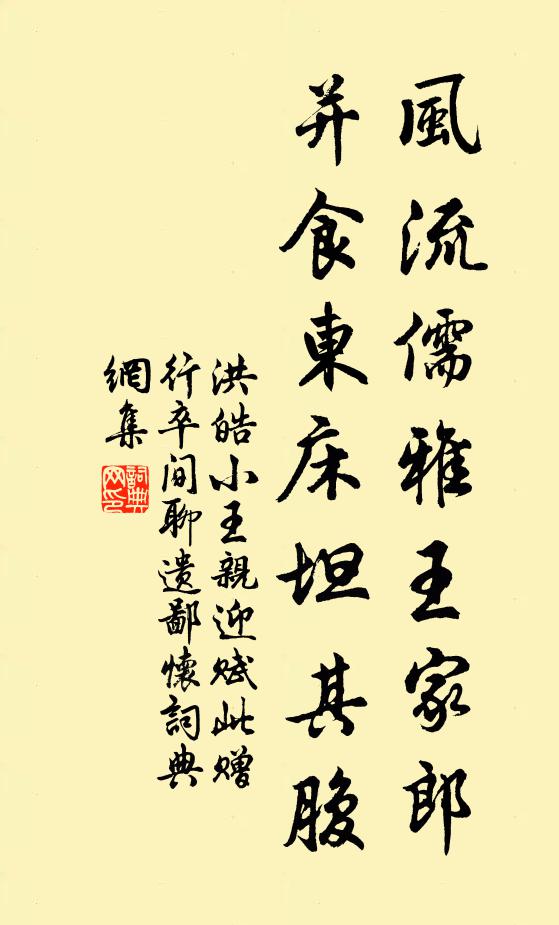 風流儒雅王家郎
并食東床坦其腹
洪皓小王親迎赋此赠
行卒闻聊遗鄙懷詞典
網集
詞典网印